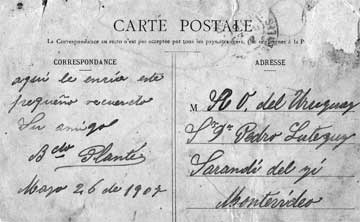 CARTE POSTALE
La Correspondance au recto n'est pas acceptée par tous les pays étrangers. (Se renseigner à la P
CORRESPONDANCE
aqui le envia este
pequeño recuerdo
Su amigo
B Planté
Mayo 26 de 1907
ADRESSE
M R. O. del Uruguay
Sr Dn Pedro
Sarandí del yí
Montevideo